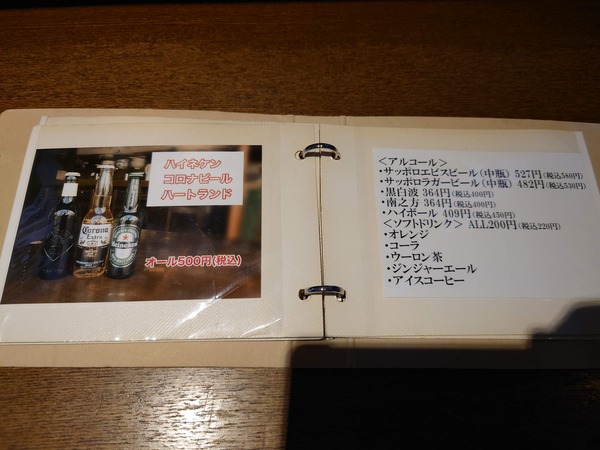 ハイネケン
コロナビール
ハートランド
Corona
Extra
Heineken
オール500円(税込)
<アルコール>
・サッポロエビスビール(中瓶) 527円(税込580円)
・サッポロラガービール(中瓶) 482円(税込530円)
・黒白波 364円(税込400円)
・南之方 364円(税込400円)
・ハイボール 409円(税込450円)
<ソフトドリンク> ALL200円(税込220円)
・オレンジ
・コーラ
・ウーロン茶
・ジンジャーエール
・アイスコーヒー